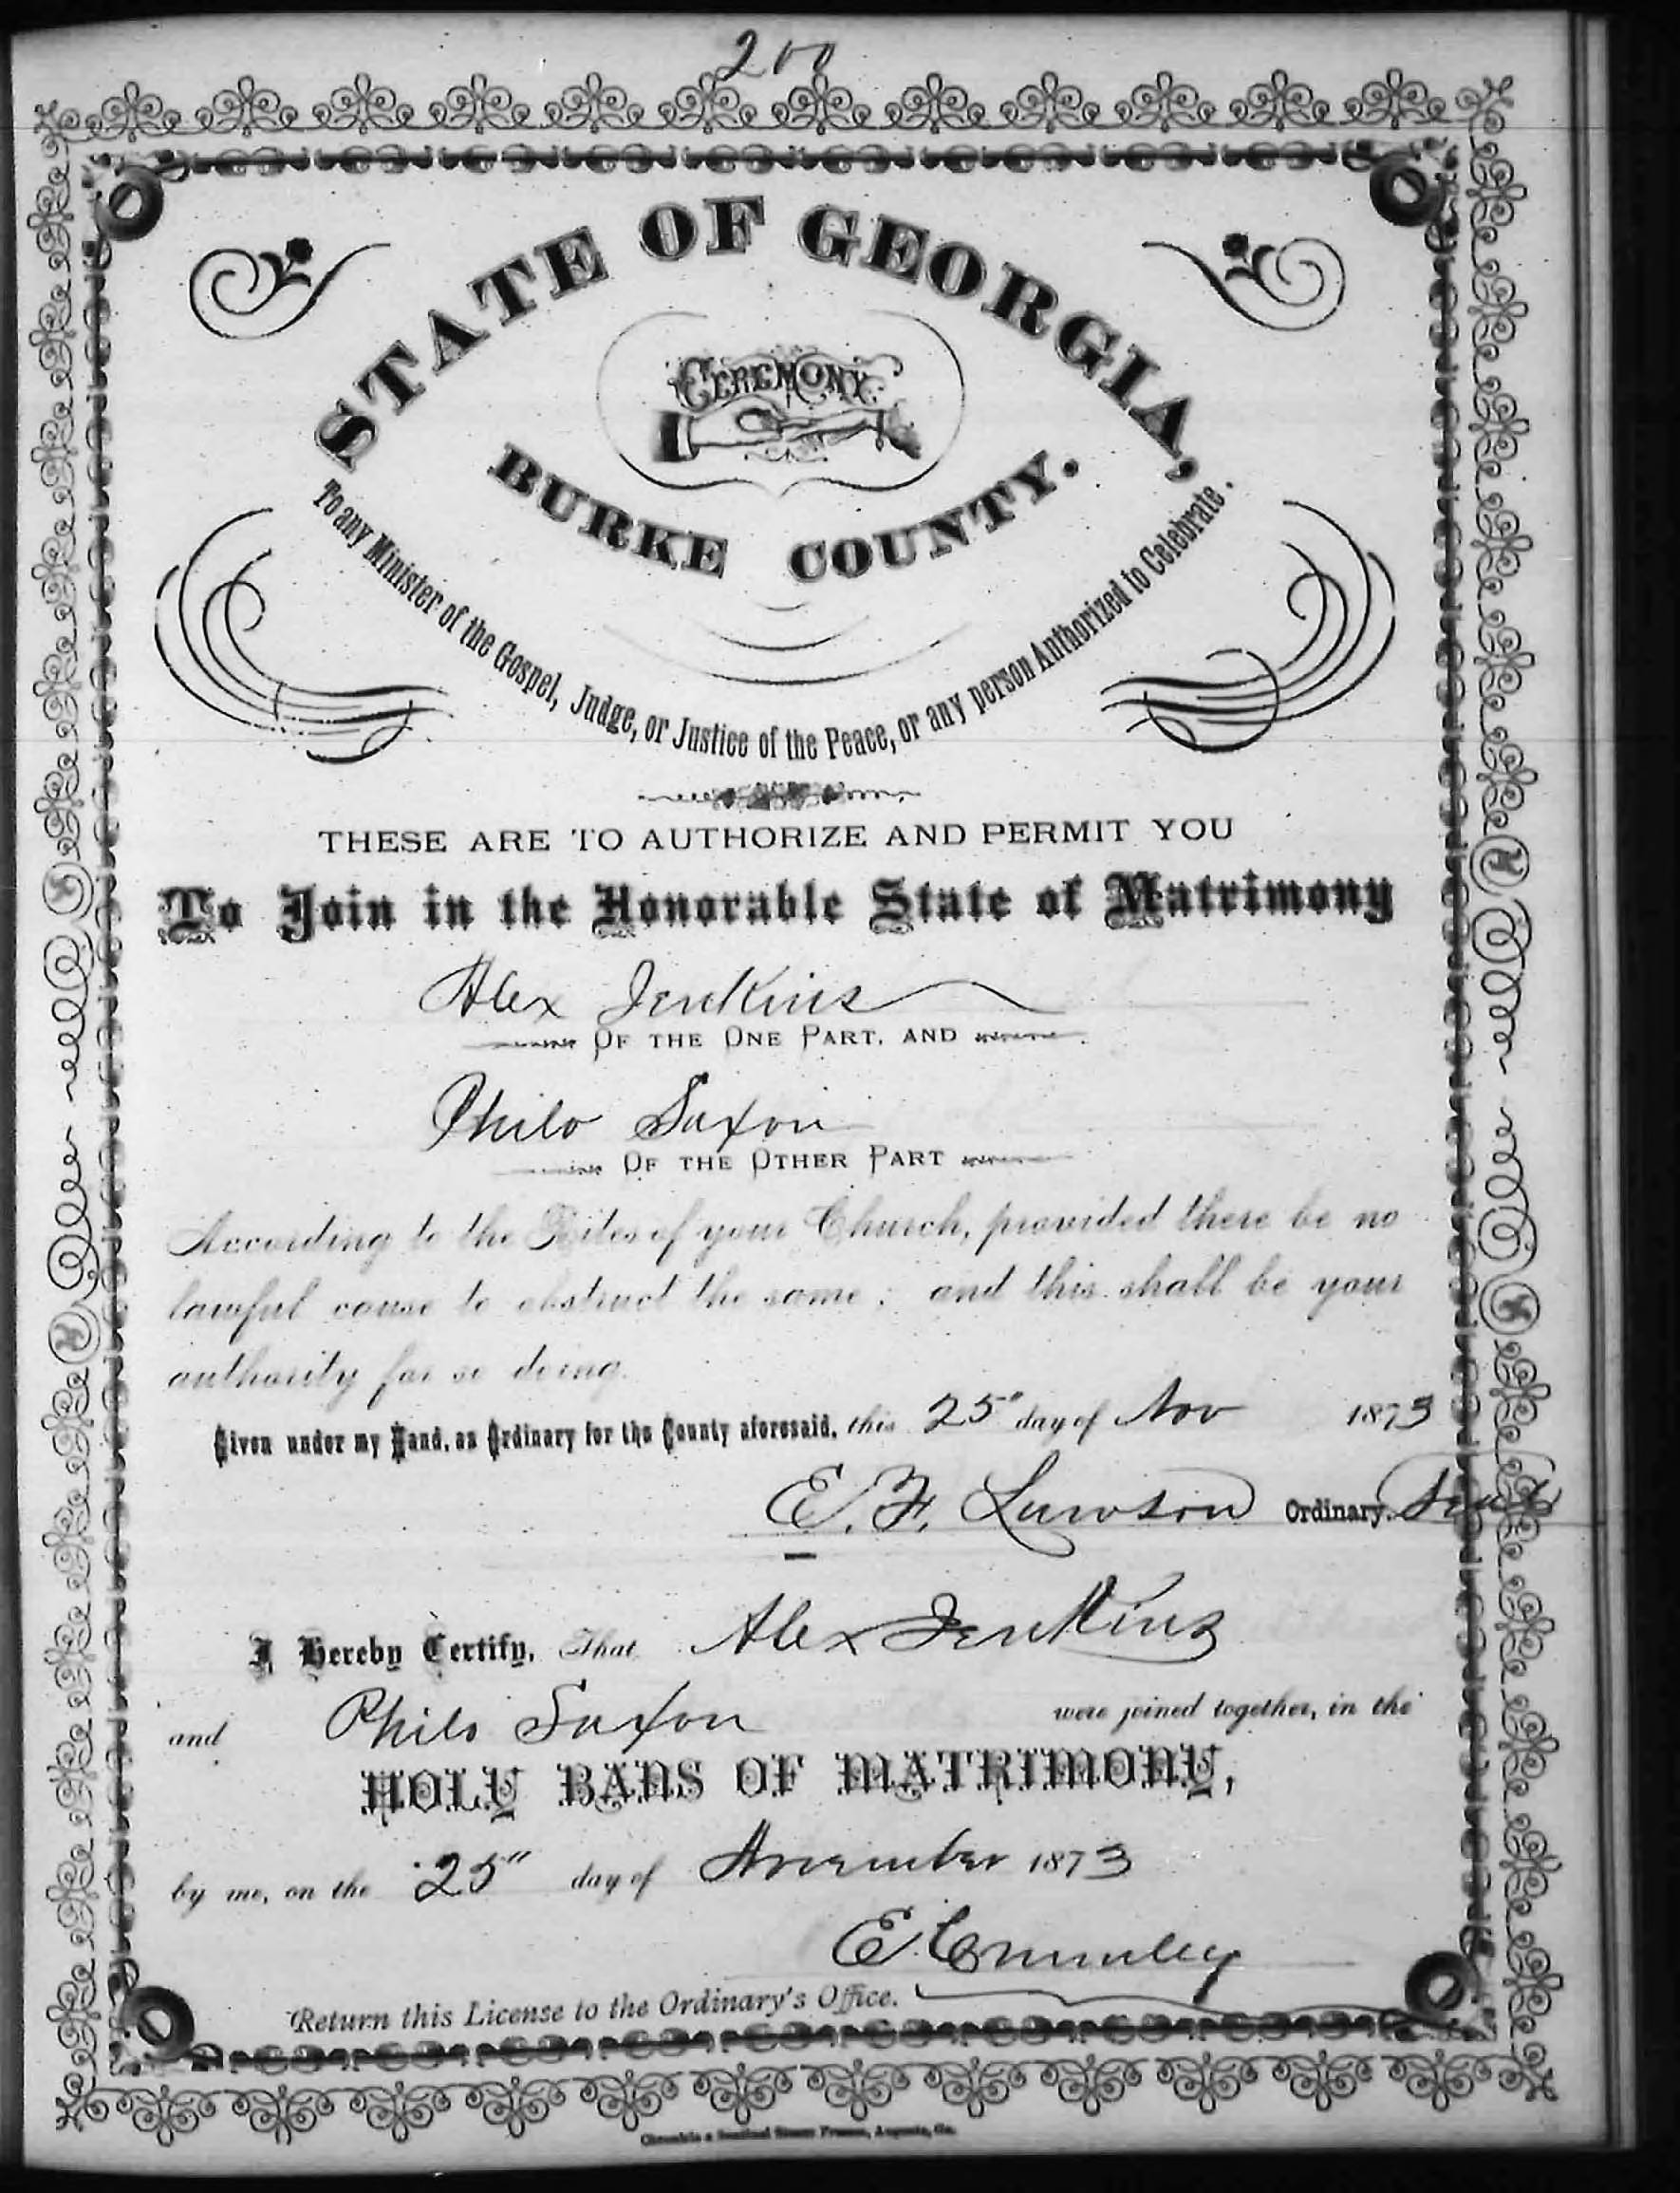 200
STATE OF GEORGIA,
CEREMONY
BURKE COUNTY.
To any Minister of the Gospel, Judge, or Justice of the Peace, or any person Authorized to Celebrate.
THESE ARE TO AUTHORIZE AND PERMIT YOU
To Join in the Honorable State of Matrimony
Alex Jenkins
OF THE ONE PART, AND
Philo Saxon
OF THE OTHER PART
According to the Rites of your Church, provided there be no
lawful cause to obstruct the same; and this shall be your
authority for so doing.
Given under my Hand, as Ordinary for the County aforesaid, this 25" day of Nov 1873
E. F. Lawson Ordinary. Seal
I Hereby Certify, That Alex Jenkins
and Philo Saxon were joined together, in the
HOLY BANS OF MATRIMONY,
by me, on the 25" day of November 1873
E. Crumley
Return this License to the Ordinary's Office.
Chronicle & Sentinel Steam Presses, Augusta, Ga.